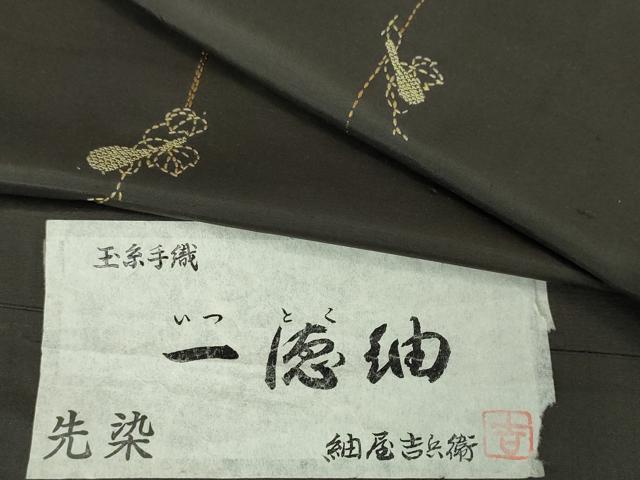 玉糸手織
いつとこ
一徳紬
先染
紬屋吉兵衛
吉